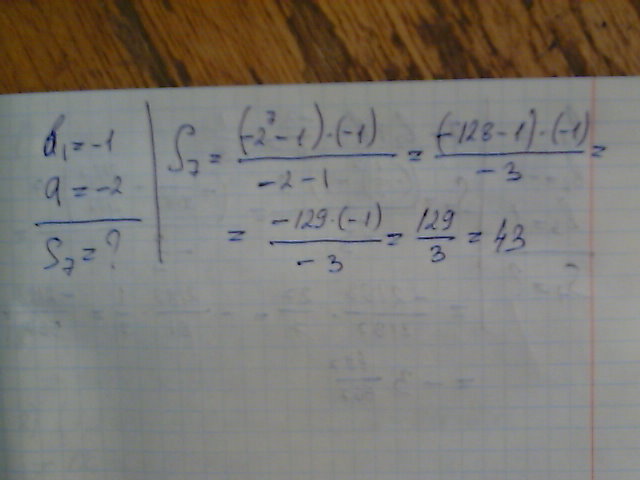 b₁ = -1
q = -2
S₇ = ?
S₇ = \frac{(-2⁷ - 1) · (-1)}{-2 - 1} = \frac{(-128 - 1) · (-1)}{-3} =
= \frac{-129 · (-1)}{-3} = \frac{129}{3} = 43